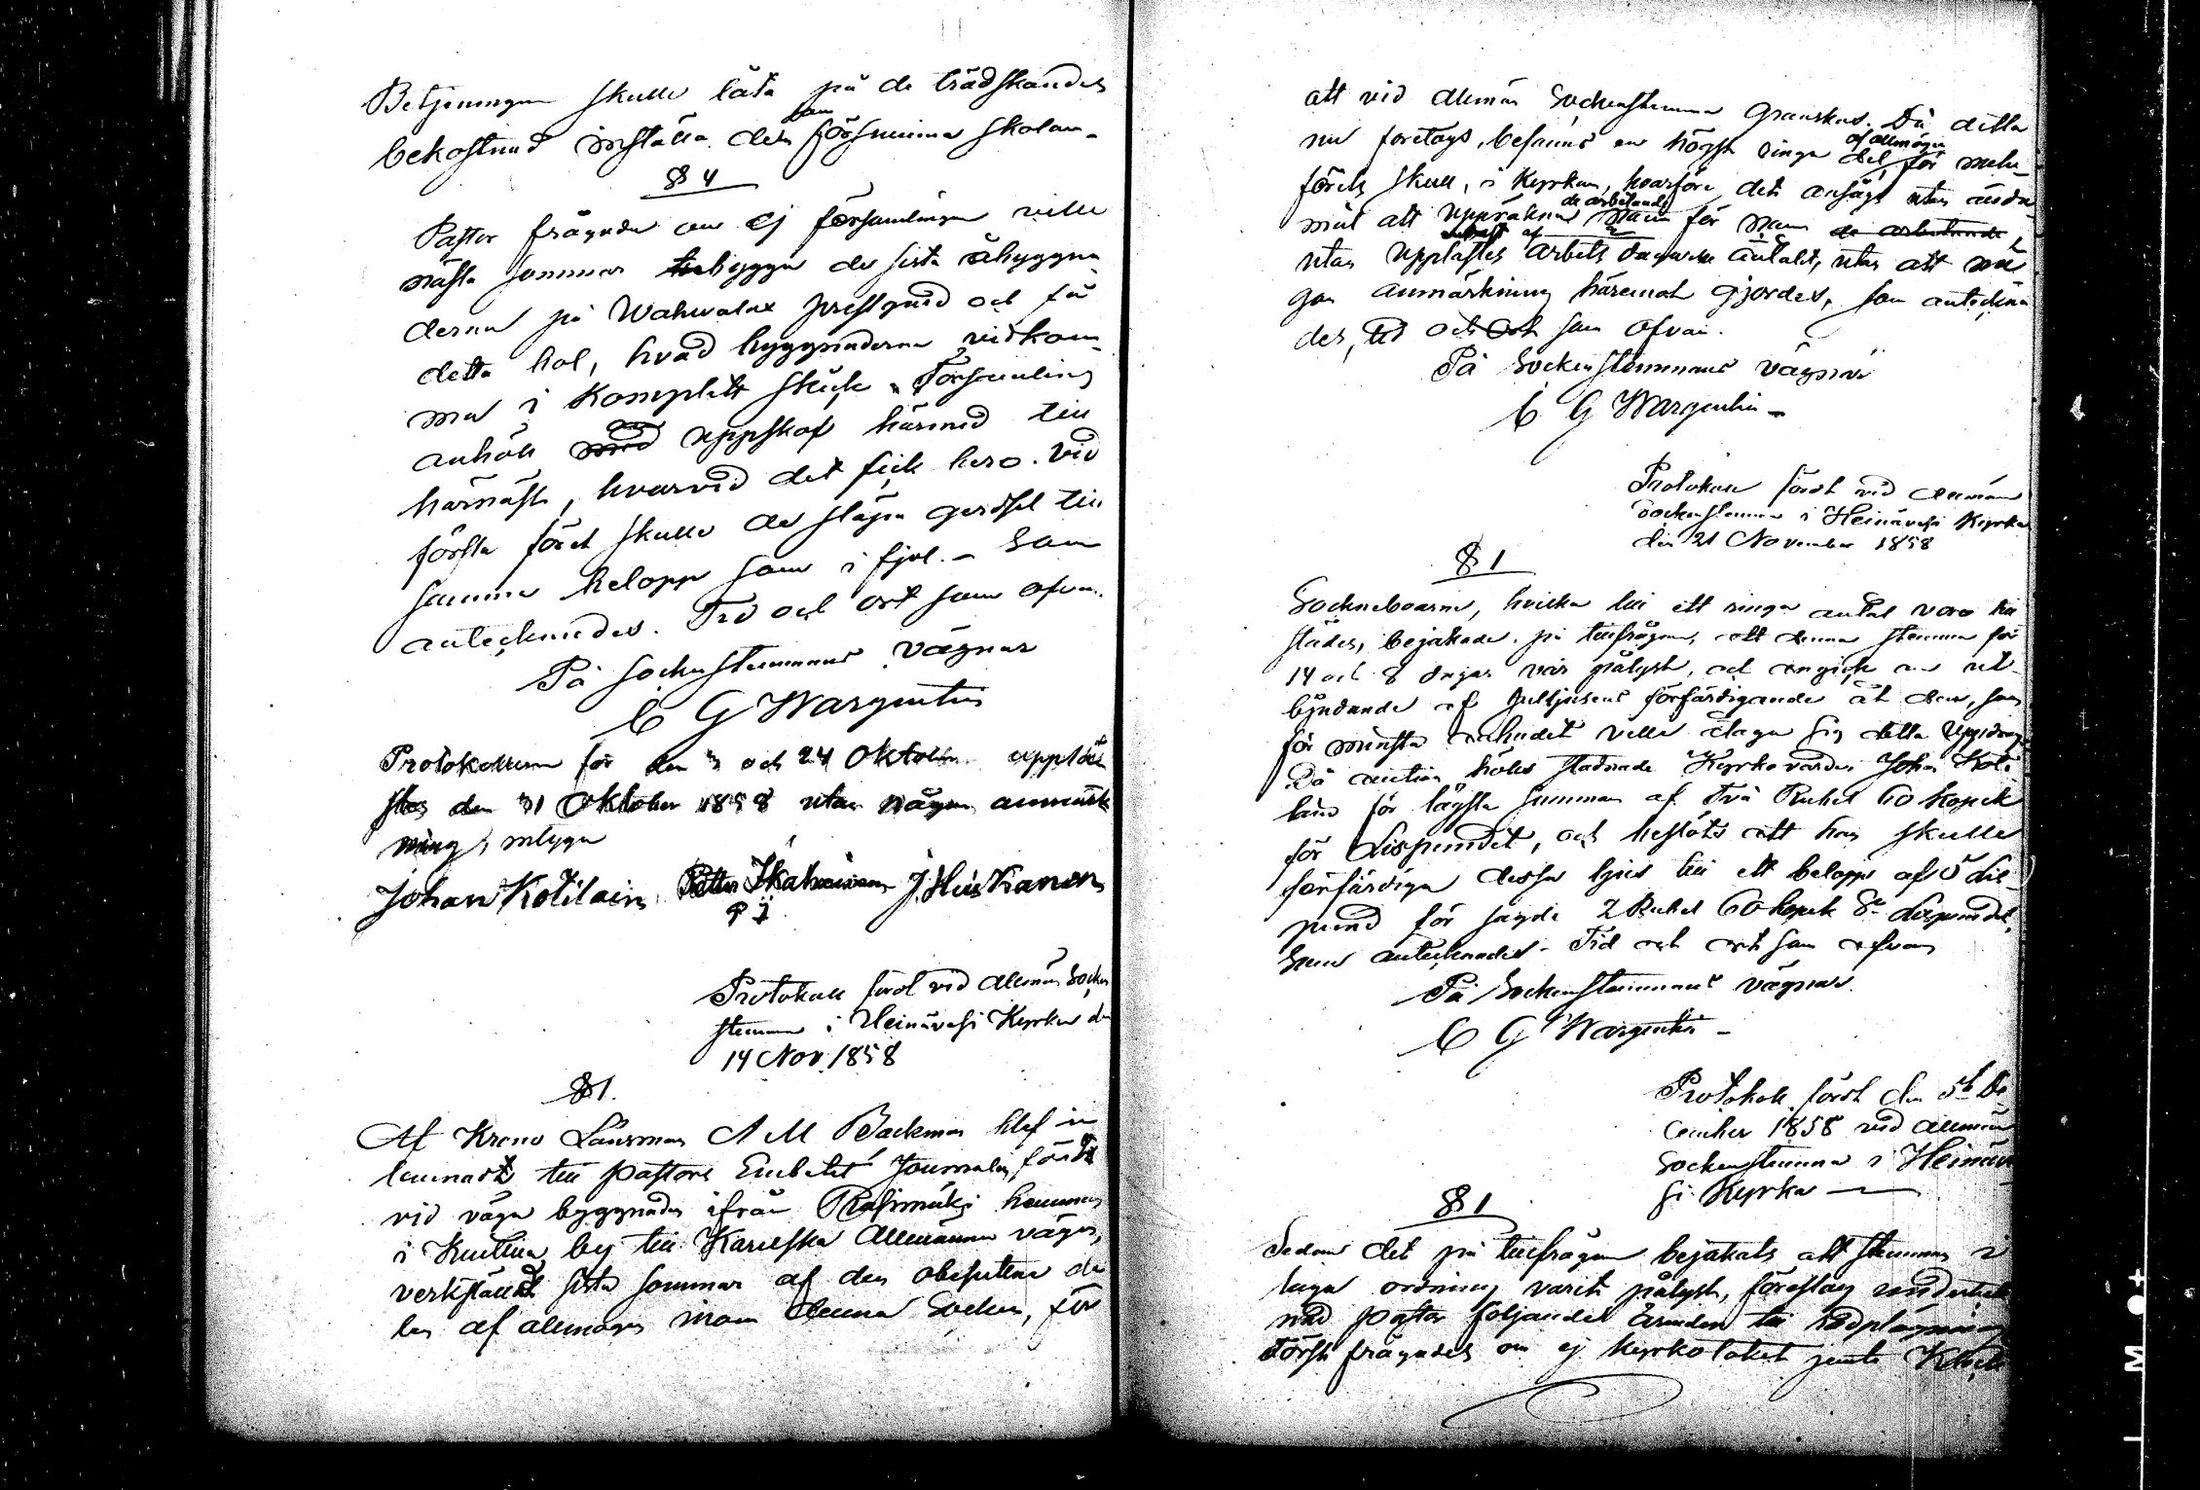 Betjeningen skulle låta på de trädskandes
bekostnad inställa dem som försumma skolan.
§ 4
Pastor frågade om ej församlingen ville
nästa sommar bebygga de sista åbyggna
derna på Wahvalax prestgård och få
detta hol, hvad byggnaderna vidkom
ma i komplett skick. Församling
anhöll om uppskof härmed till
härnäst, hvarvid det fick bero. Vid
första föret skulle de slagen gerdsel till
samma belopp som i fjol. – Som
antecknades. Tid och ort som ofvan.
På Sockenstemmans vägnar
C G Wargentin
Protokollerna för den 3 och 24 Oktober uppläs
tes den 31 Oktober 1858 utan någon anmärk
ning, intyga
Johan Kotilain Petter Ikäheimonen J. Huiskanen
P I
Protokoll fördt vid allmän Socken
stemma i Heinävesi Kyrka den
14 Nov. 1858
§ 1.
Af Krono Länsman A M Backman blef in
lemnadt till Pastors Embetet Journalen, förd
vid väga byggnaden ifrån hemman
i by till Karulska allmänna vägen,
verkstäld sista sommar af den obesuttna de
len af allmogen inom denna Socken, för
att vid allmän Sockenstemma granskas. Då detta
nu foretogs, befanns en högst ringa del af allmogen, för mehn
förets skull, i Kyrkan, hvarföre det ansågs utan ända
mål att uppräkna de arbetande man för man de arbetande
utan upplästes arbets dagarne antalet, utan att nå
gon anmärkning häremot gjordes, som anteckna
des, tid och ort som ofvan.
På Sockenstemmans vägnar
C G Wargentin –
Protokoll fördt vid allmän
Sockenstemma i Heinävesi Kyrka
den 21 November 1858
§ 1
Sockneboarne, hvilka till ett ringa antal voro till
städes, bejakade på tillfrågan, att denna stemma för
14 och 8 dagar var pålyst, och angick nu ut
bjudande af Julljusens förfärdigande åt den, som
för minsta anbudet ville åtaga sig detta uppdrag.
Då auction hölls stadnade Kyrkovärden Johan Koti
lain för lägsta summan af Två Rubel 60 kopek
för Lispundet, och beslöts att han skulle
förfärdiga dessa ljus till ett belopp af 5 Lis
pund för sagde 2 Rubel 60 kopek Lispundet,
Som antecknades. Tid och ort som ofvan
På Sockenstemmans vägnar.
C G Wargentin –
Protokoll fördt den 5te De
cember 1858 vid allmän
Sockenstemma i Heinäve
si Kyrka —
§ 1
Sedan det på tillfrågan bejakats att stemman i
laga ordning varit pålyst, föreslog underteck
nad Pastor foljande ärenden till rådplägning
Först frågades om ej Kyrkotaket jemte Klock